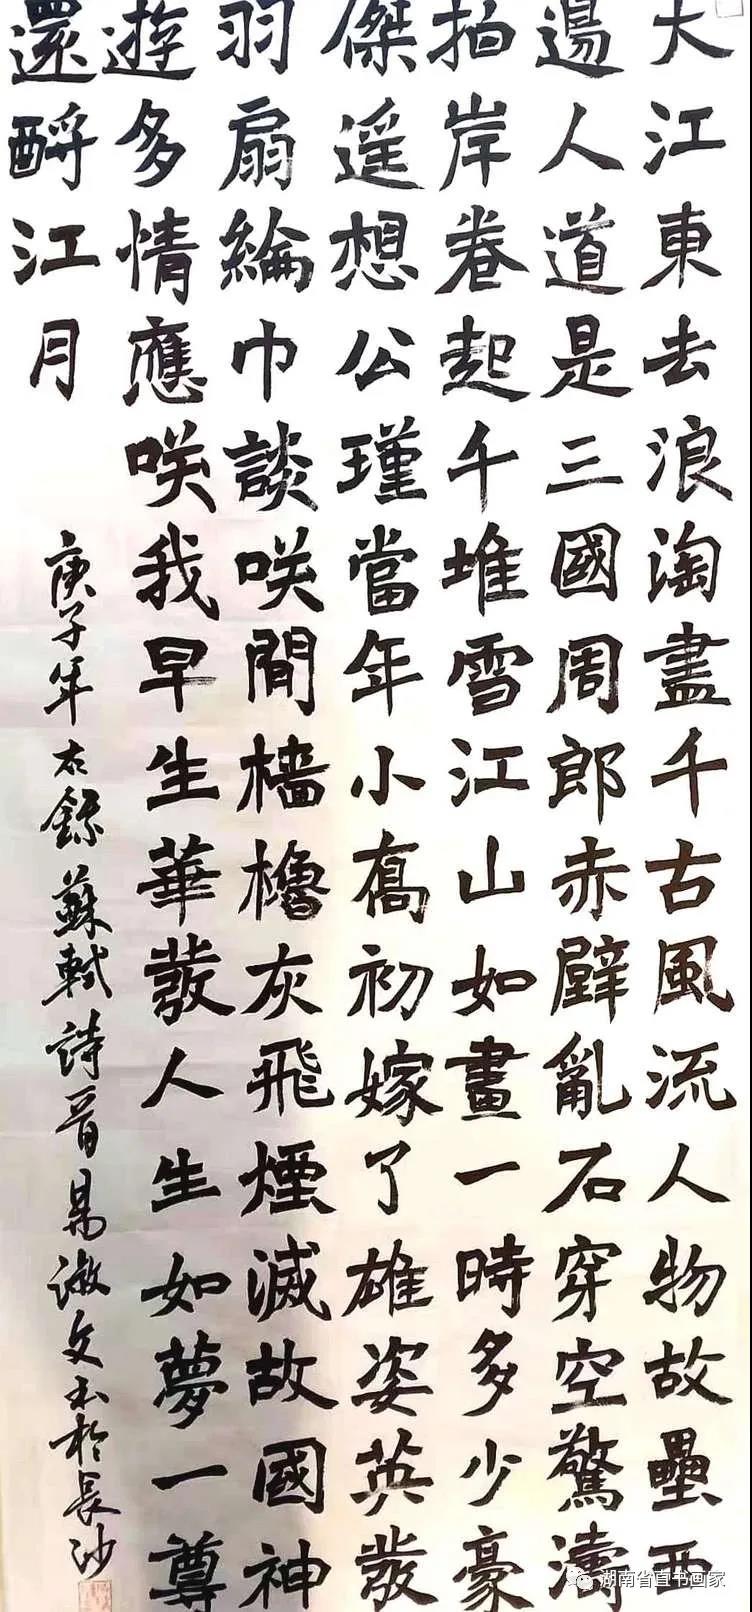 大江東去浪淘盡千古風流人物故壘西
邊人道是三國周郎赤壁亂石穿空驚濤
拍岸卷起千堆雪江山如畫一時多少豪
傑遥想公瑾當年小喬初嫁了雄姿英發
羽扇綸巾談咲間檣櫓灰飛煙滅故國神
遊多情應咲我早生華發人生如夢一尊
還酹江月
庚子年右錄蘇軾詩一首易淑文书於長沙
湖南省直书画家